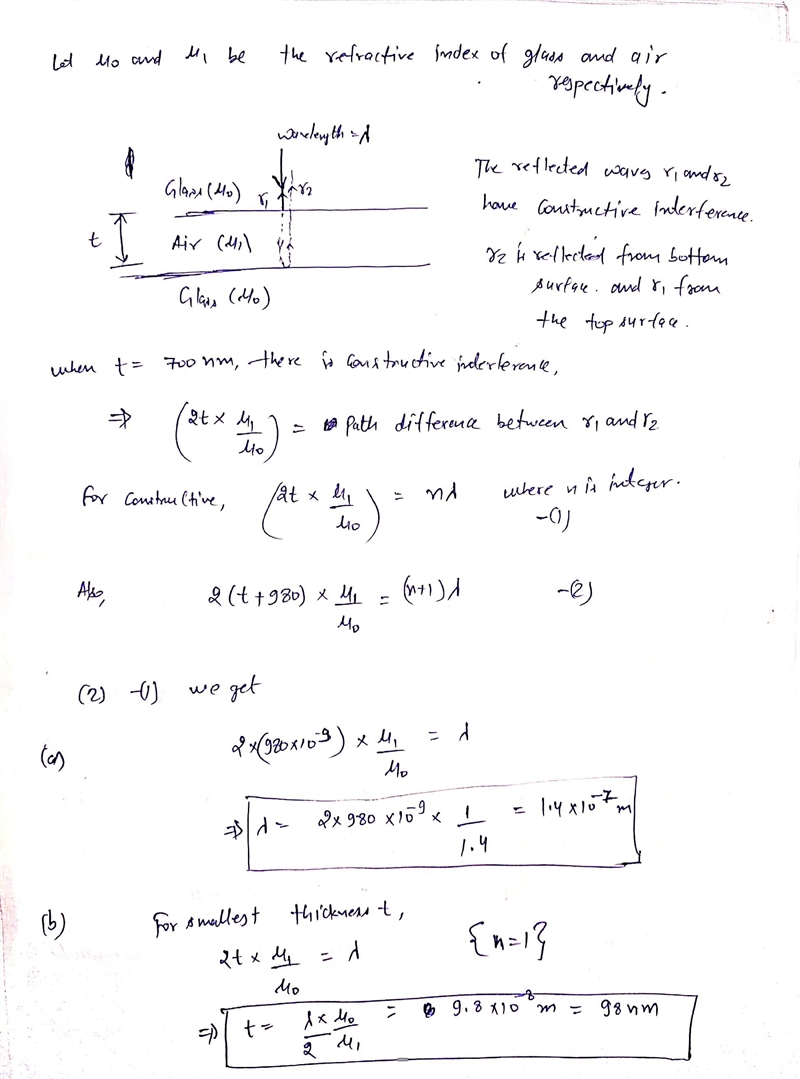 Let μ0 and μ1 be the refractive index of glass and air
respectively.
wavelength = λ
Glass (μ0) r1 r2
t Air (μ1)
Glass (μ0)
The reflected waves r1 and r2
have constructive interference.
r2 is reflected from bottom
surface. and r1 from
the top surface.
when t = 700 nm, there is constructive inderference,
⇒ (2t × μ1/μ0) = Path difference between r1 and r2
For constructive, (2t × μ1/μ0) = nλ where n is integer.
-(1)
Also, 2(t+980) × μ1/μ0 = (n+1)λ -(2)
(2) -(1) we get
(a) 2×(980×10^-9) × μ1/μ0 = λ
⇒ λ = 2×980 ×10^-9 × 1/1.4 = 1.4 ×10^-7 m
(b) For smallest thickness t,
2t × μ1/μ0 = λ {n=1}
⇒ t = λ×μ0/2 μ1 = 9.8 ×10^-8 m = 98 nm